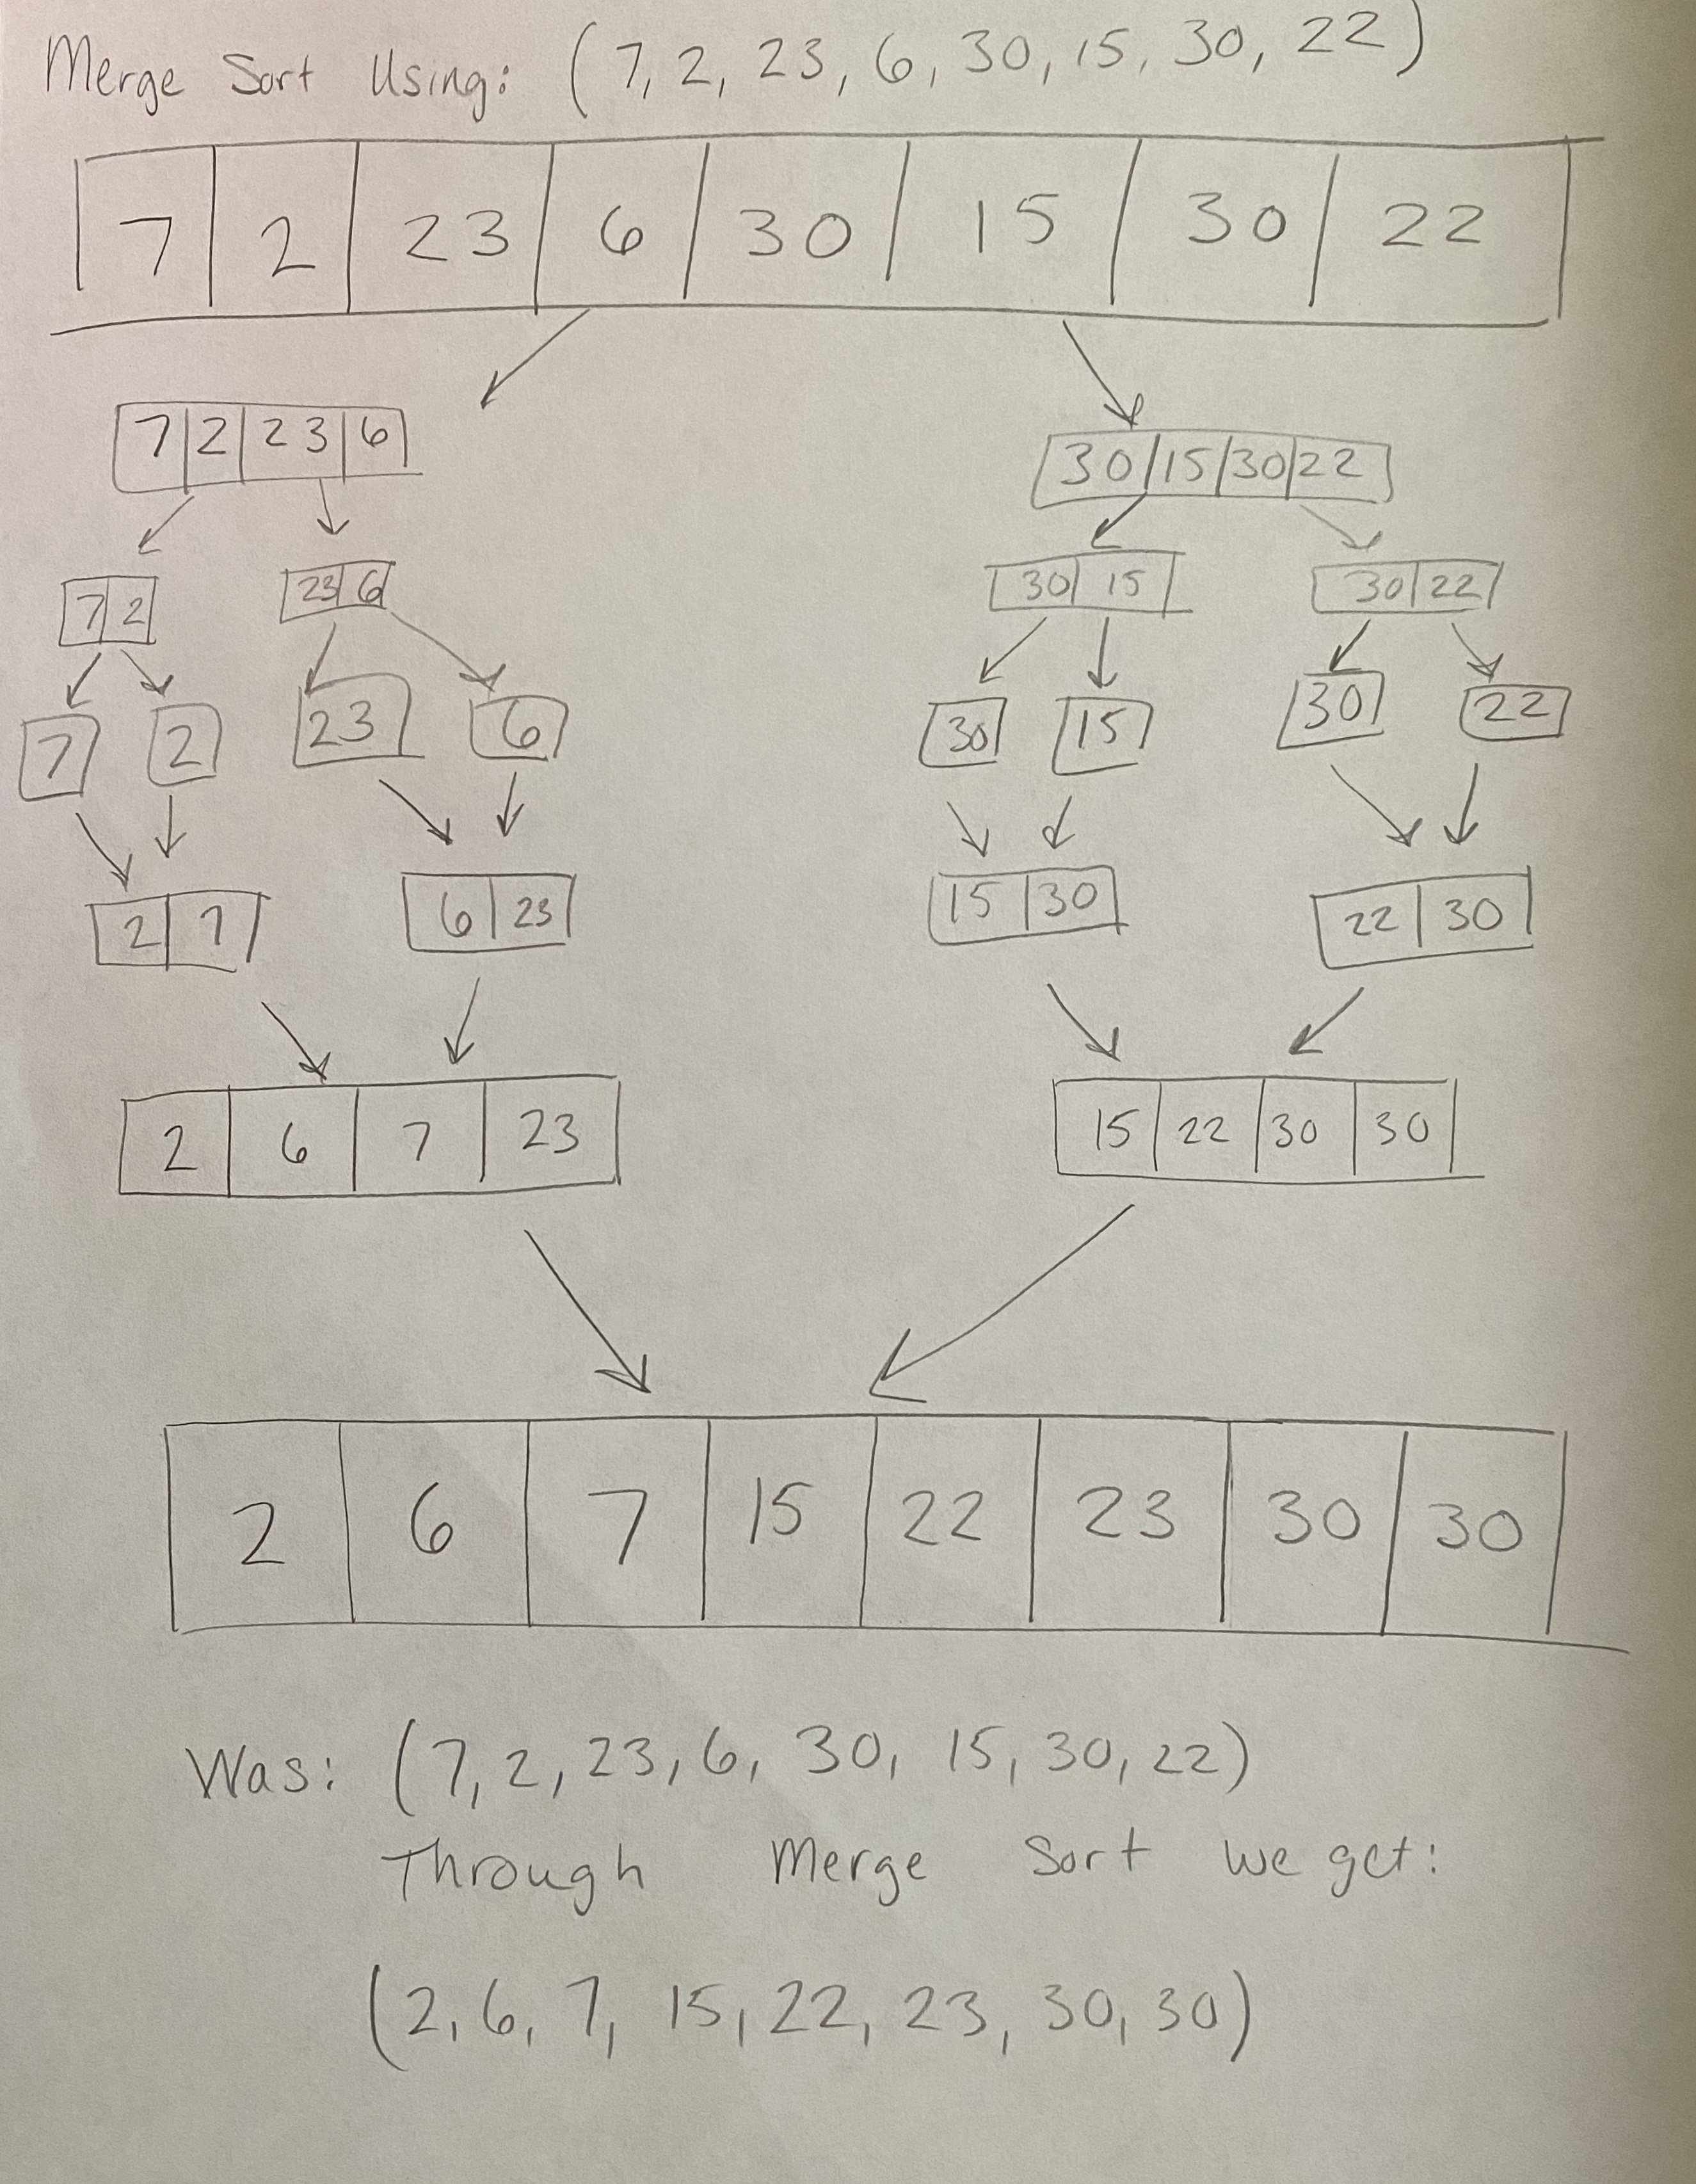 Merge Sort Using: (7, 2, 23, 6, 30, 15, 30, 22)
7 2 23 6 30 15 30 22
7 2 23 6 30 15 30 22
7 2 23 6 30 15 30 22
7 2 23 6 30 15 30 22
2 7 6 23 15 30 22 30
2 6 7 23 15 22 30 30
2 6 7 15 22 23 30 30
Was: (7, 2, 23, 6, 30, 15, 30, 22)
Through Merge Sort we get:
(2, 6, 7, 15, 22, 23, 30, 30)